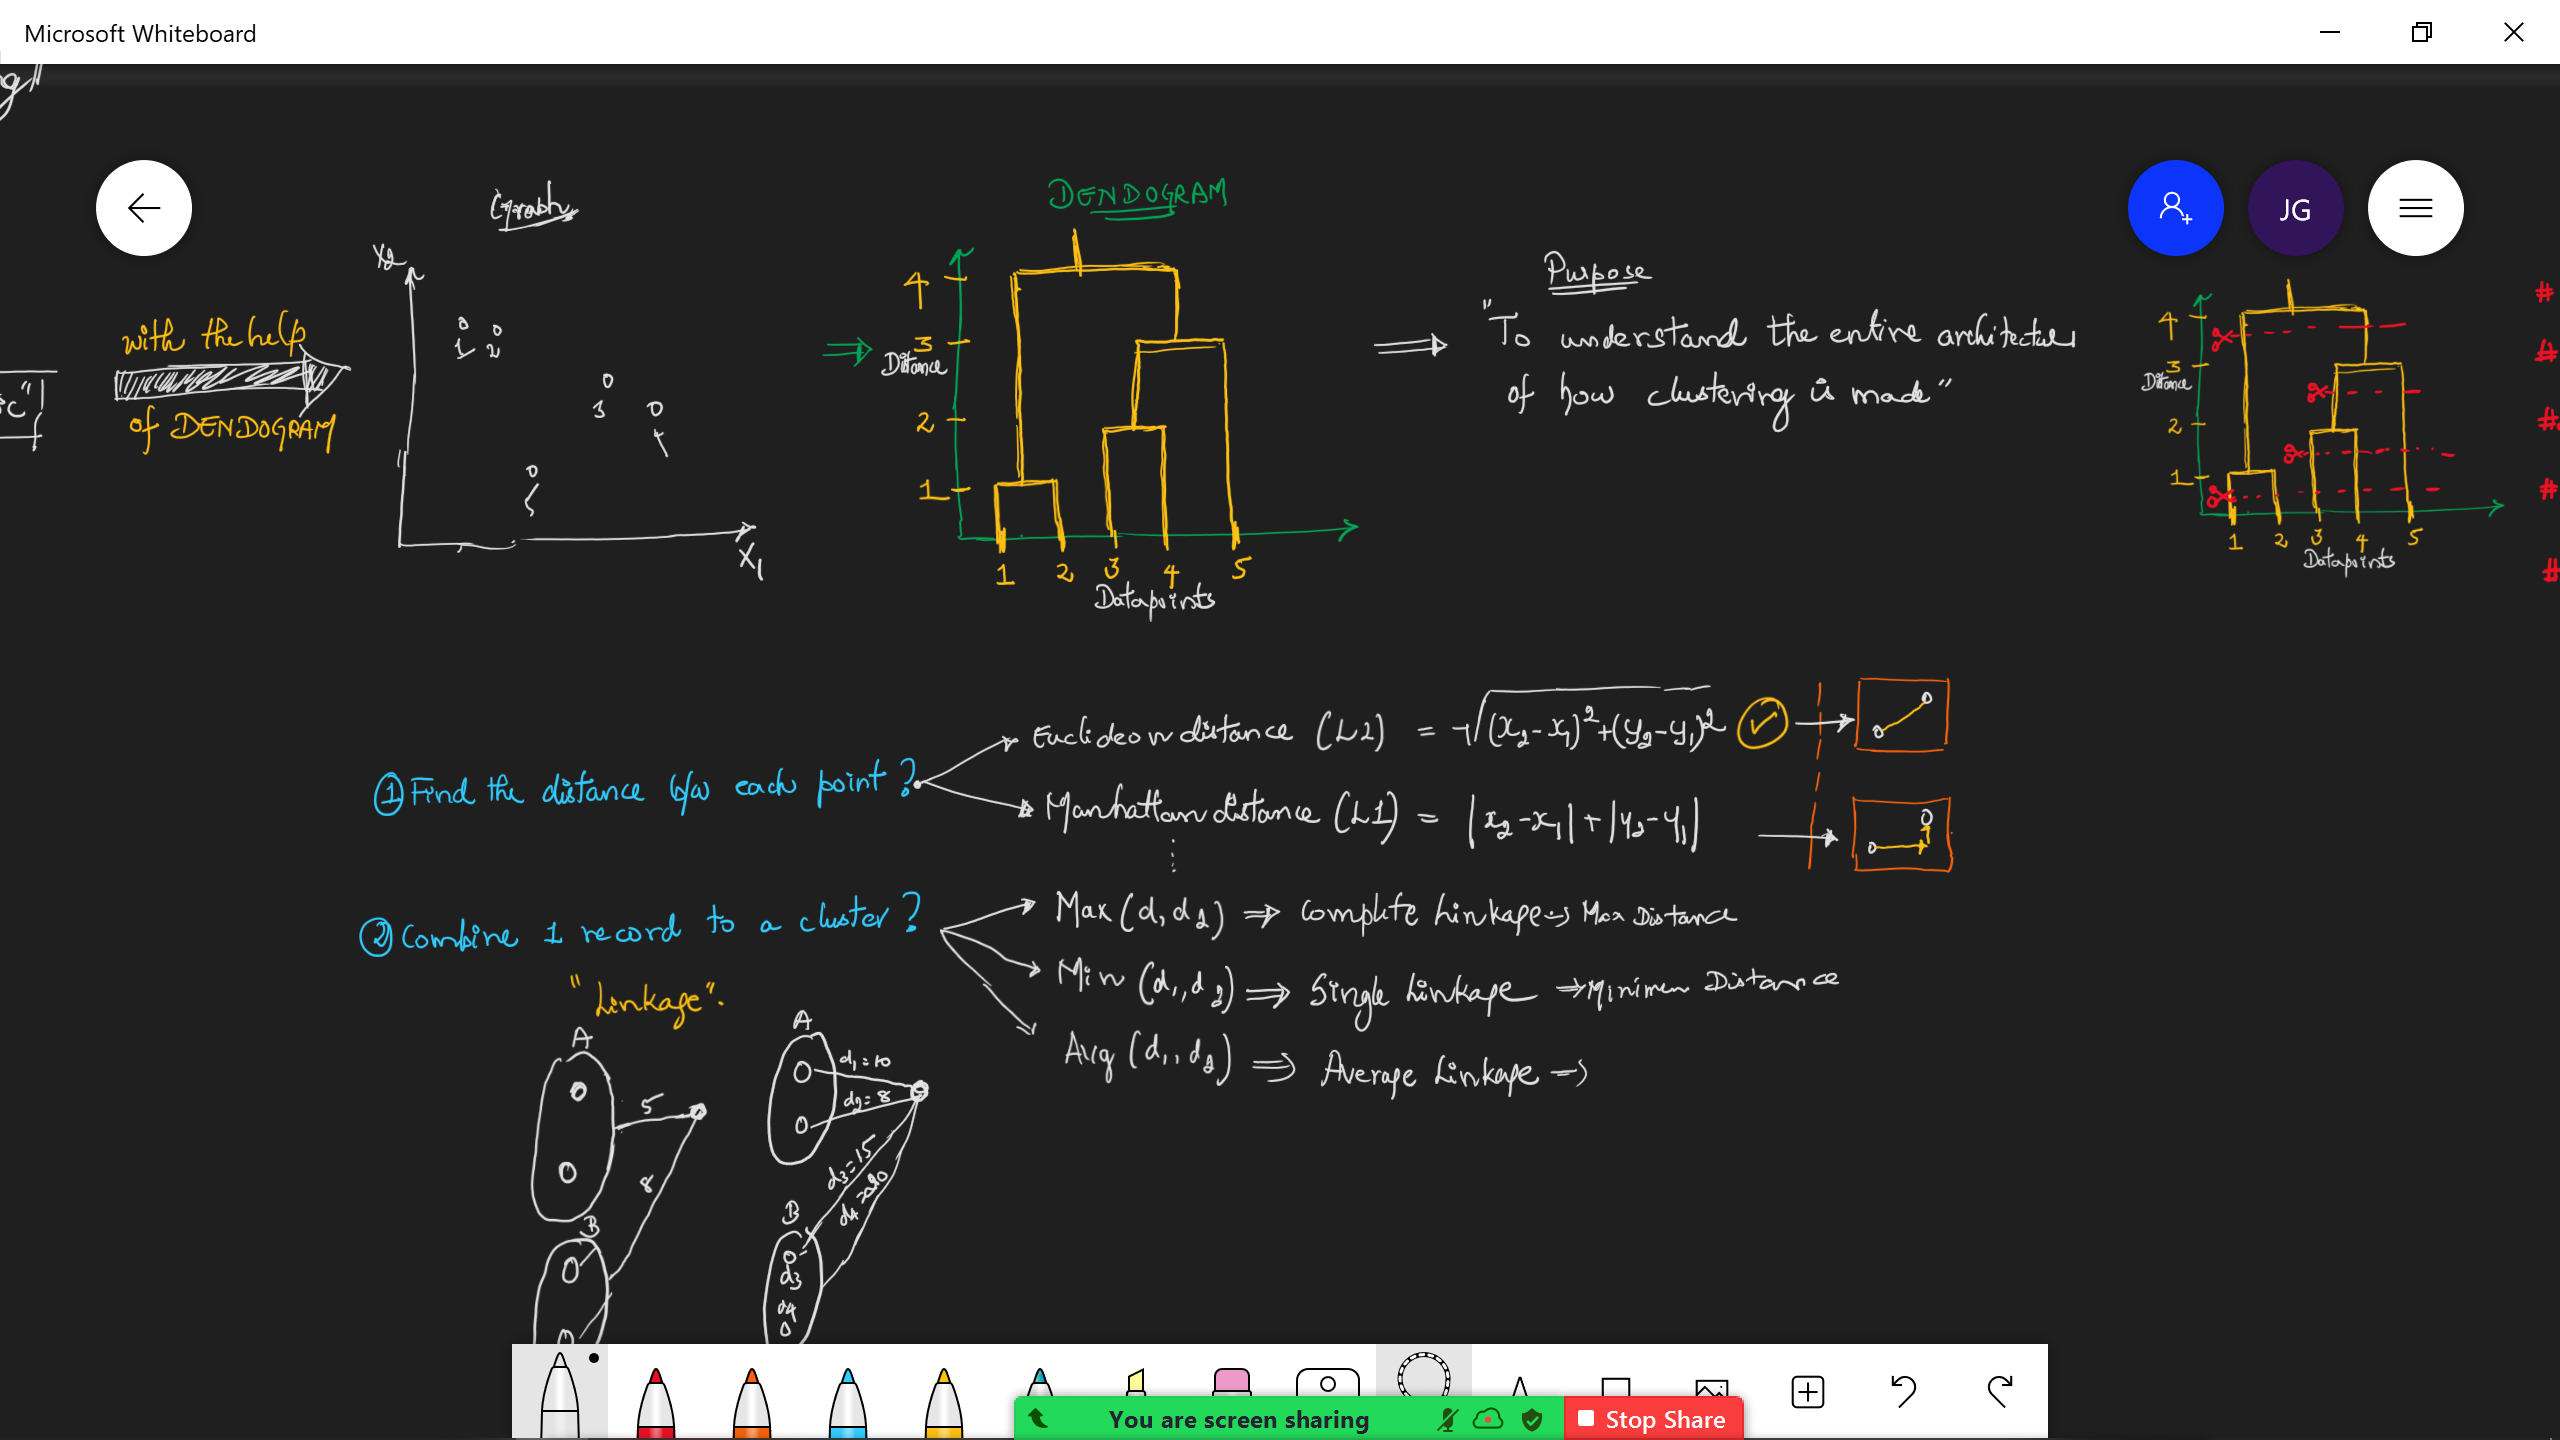 Microsoft Whiteboard
g"
JG
Graph
X2
1 2
3
4
5
X1
with the help
of DENDOGRAM
c"
DENDOGRAM
4
3
Distance
2
1
1 2 3 4 5
Datapoints
Purpose
"To understand the entire architecture
of how clustering is made"
4
3
Distance
2
1
1 2 3 4 5
Datapoints
#
#
#
#
#
① Find the distance b/w each point?
Euclidean distance (L2) = √(x2-x1)²+(y2-y1)²
Manhattan distance (L1) = |x2-x1|+|y2-y1|
② Combine 1 record to a cluster?
"Linkage".
Max (d1 d2) ⇒ Complete Linkage → Max Distance
Min (d1, d2) ⇒ Single Linkage ⇒ Minimum Distance
Avg (d1, d2) ⇒ Average Linkage ⇒
A
5
8
B
A
d1=10
d2=8
d3=15
d4=20
B
d3
d4
You are screen sharing
Stop Share